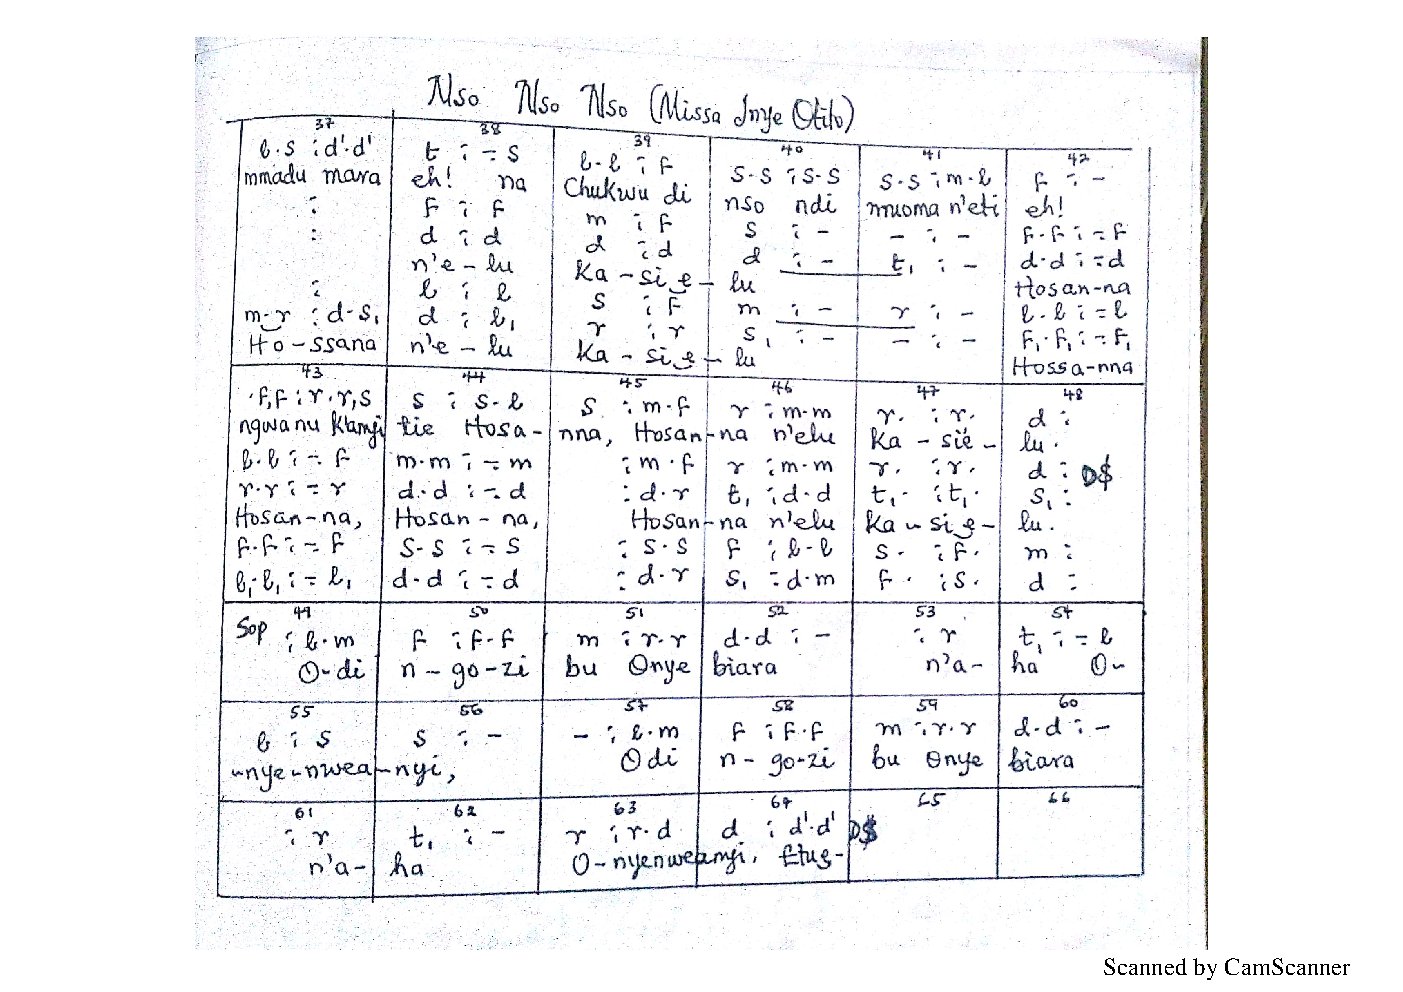 Nso Nso Nso (Missa Inye Otito)
37 38 39 40 41 42
l.s : d'.d' t : - s l.l : f s.s : s.s s.s : m.l f : -
mmadu mara eh! na Chukwu di nso ndi muoma n'eti eh!
: f : f m : f s : - - : - f.f : - f
: d : d d : d d : - t, : - d.d : - d
n'e - lu Ka - si e - lu Hosan-na
: l : l s : f m : - r : - l.l : - l
m-r : d-s, d : l, r : r s, : - - : - f,.f, : - f,
Ho - ssana n'e - lu Ka - si e - lu Hossa-nna
43 44 45 46 47 48
.f,f : r.r,s s : s-l s : m.f r : m.m r. : r. d :
ngwanu K'anyi tie Hosa- nna, Hosan-na n'elu Ka - sie - lu.
l.l : - f m.m : - m : m.f r : m.m r. : r. d : D$
r.r : - r d.d : - d : d.r t, : d.d t,. : t,. s, :
Hosan-na, Hosan - na, Hosan-na n'elu Ka - si e - lu.
f.f : - f s.s : - s : s.s f : l.l s. : f. m :
l,.l, : - l, d.d : - d : d.r s, : d.m f. : s. d :
49 50 51 52 53 54
Sop : l.m f : f.f m : r.r d.d : - : r t, : - l
O-di n - go-zi bu Onye biara n'a- ha O-
55 56 57 58 59 60
l : s s : - - : l.m f : f.f m : r.r d.d : -
-nye-nwea-nyi, Odi n - go-zi bu Onye biara
61 62 63 64 65 66
: r t, : - r : r.d d : d'.d' D$
n'a- ha O-nyenweanyi. Etue-
Scanned by CamScanner